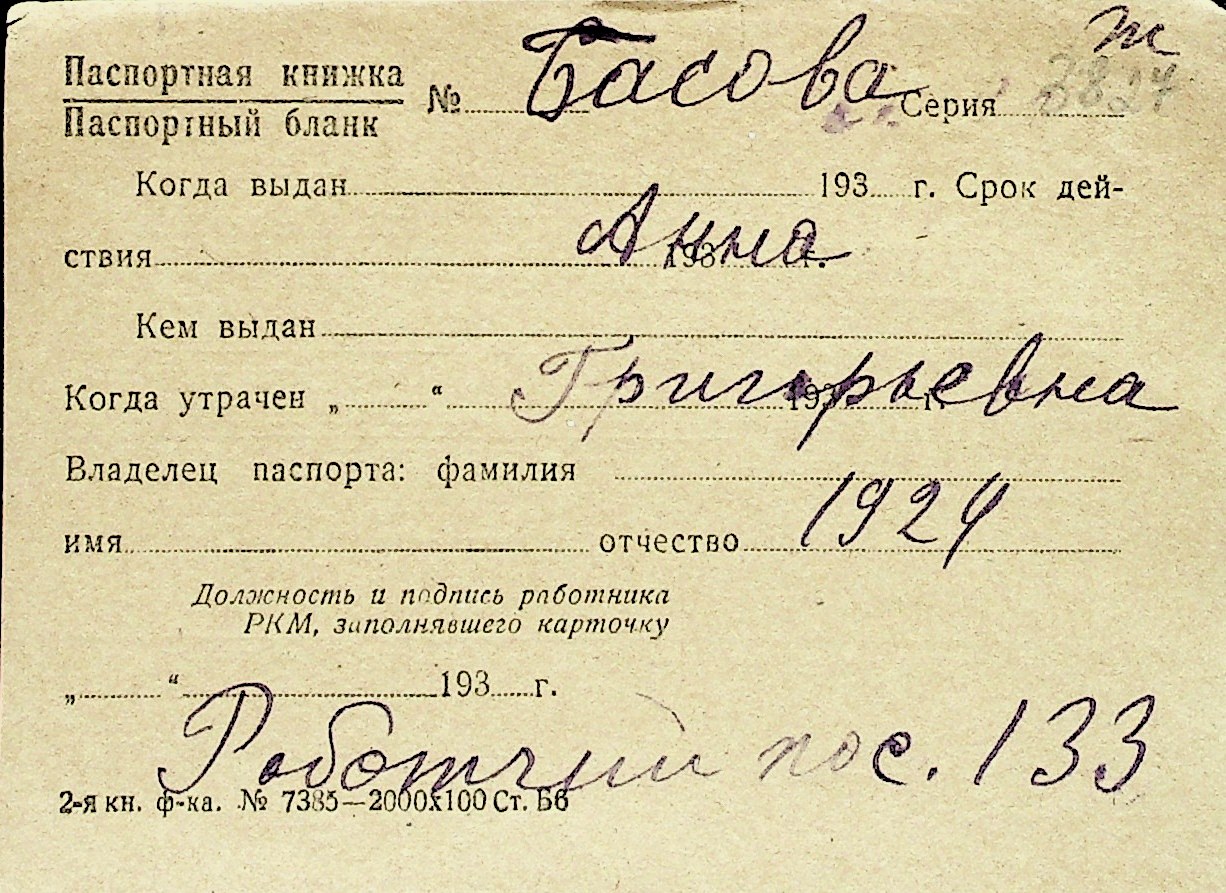 т
Паспортная книжка
Паспортный бланк
№ Басова Серия 3824
Когда выдан 193 г. Срок дей-
ствия Анна 193 г.
Кем выдан
Когда утрачен „ “ Григорьевна 193 г.
Владелец паспорта: фамилия
имя отчество 1924
Должность и подпись работника
РКМ, заполнявшего карточку
„ “ 193 г.
Работчий пос. 133
2-я кн. ф-ка. № 7385—2000х100 Ст. Б6